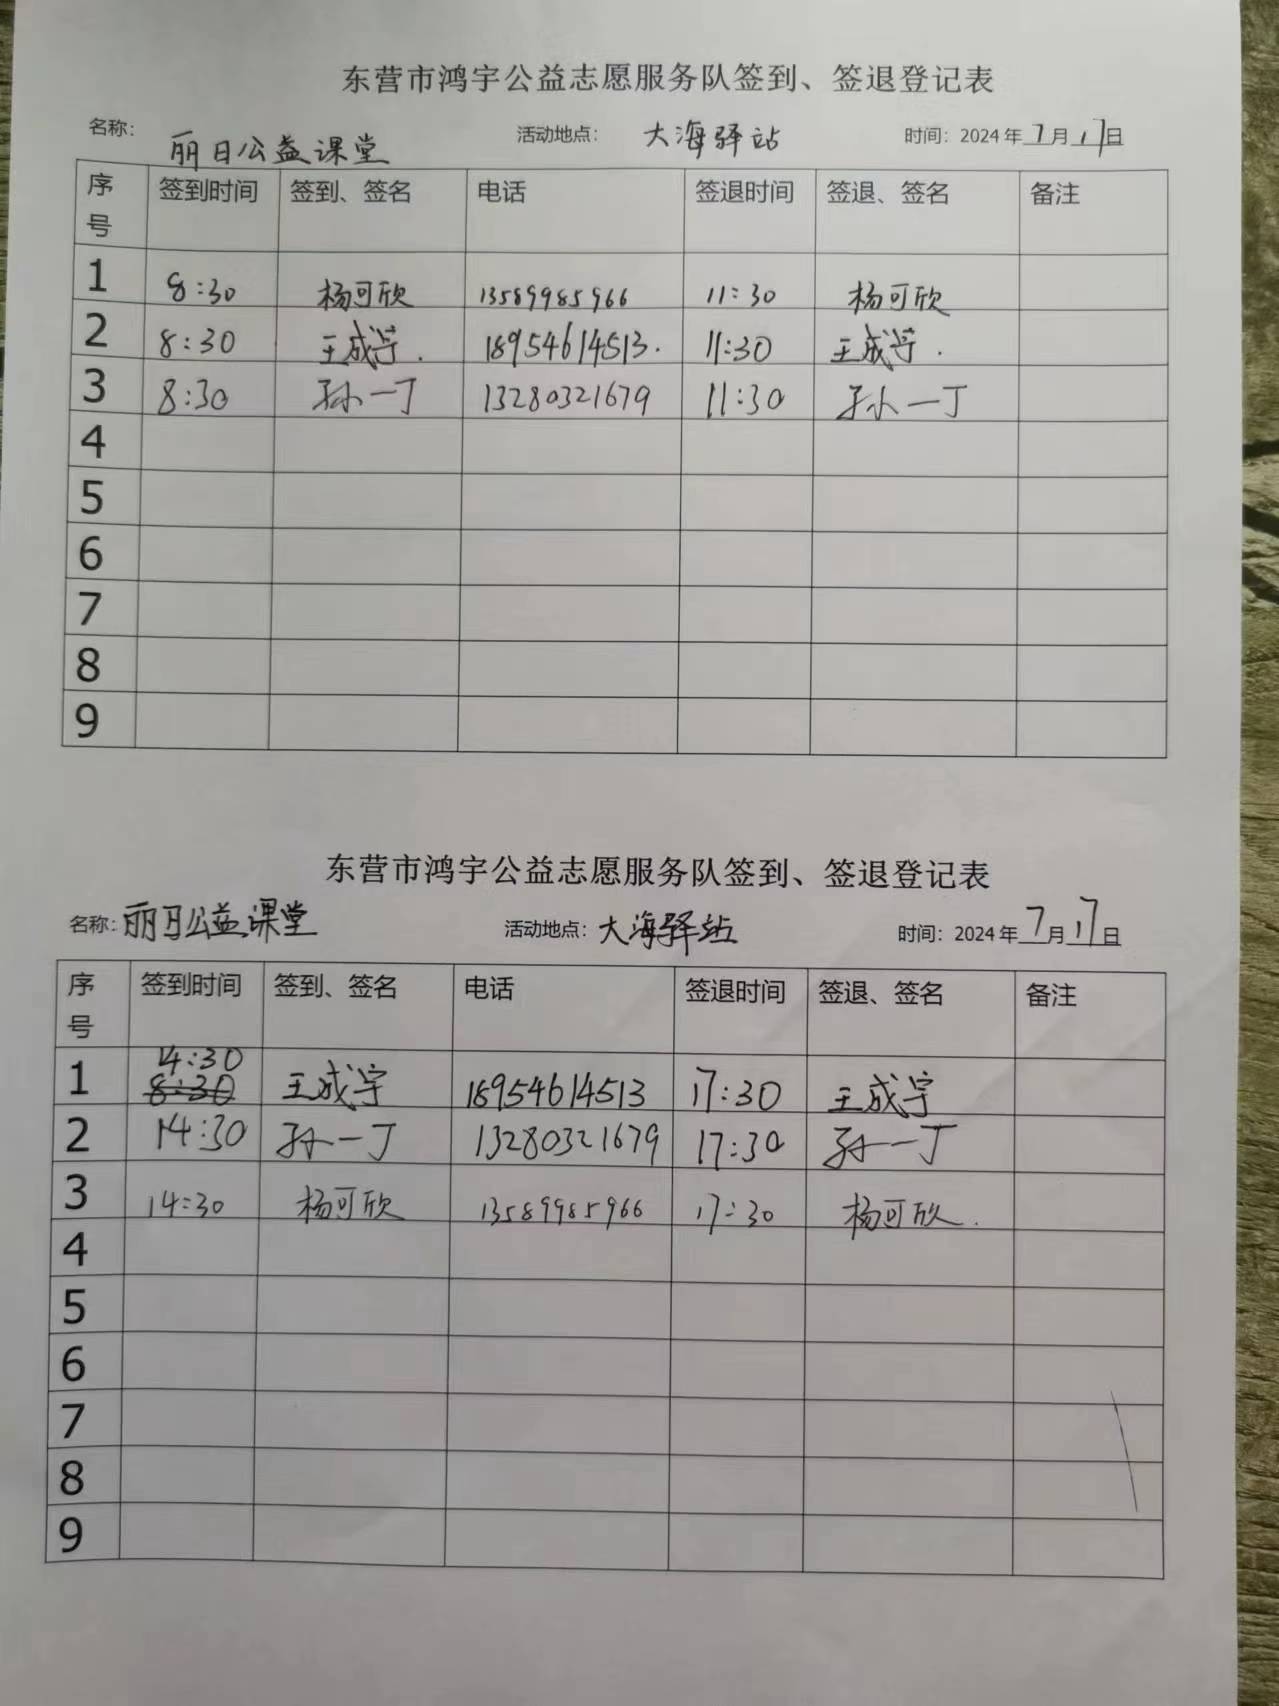 东营市鸿宇公益志愿服务队签到、签退登记表
名称： 丽日公益课堂 活动地点： 大海驿站 时间：2024年7月17日
序号 签到时间 签到、签名 电话 签退时间 签退、签名 备注
1 8:30 杨可欣 13589985966 11:30 杨可欣
2 8:30 王成宇. 18954614513. 11:30 王成宇.
3 8:30 孙一丁 13280321679 11:30 孙一丁
4
5
6
7
8
9
东营市鸿宇公益志愿服务队签到、签退登记表
名称：丽日公益课堂 活动地点：大海驿站 时间：2024年7月17日
序号 签到时间 签到、签名 电话 签退时间 签退、签名 备注
14:30
1 8:30 王成宇 18954614513 17:30 王成宇
2 14:30 孙一丁 13280321679 17:30 孙一丁
3 14:30 杨可欣 13589985966 17:30 杨可欣.
4
5
6
7
8
9